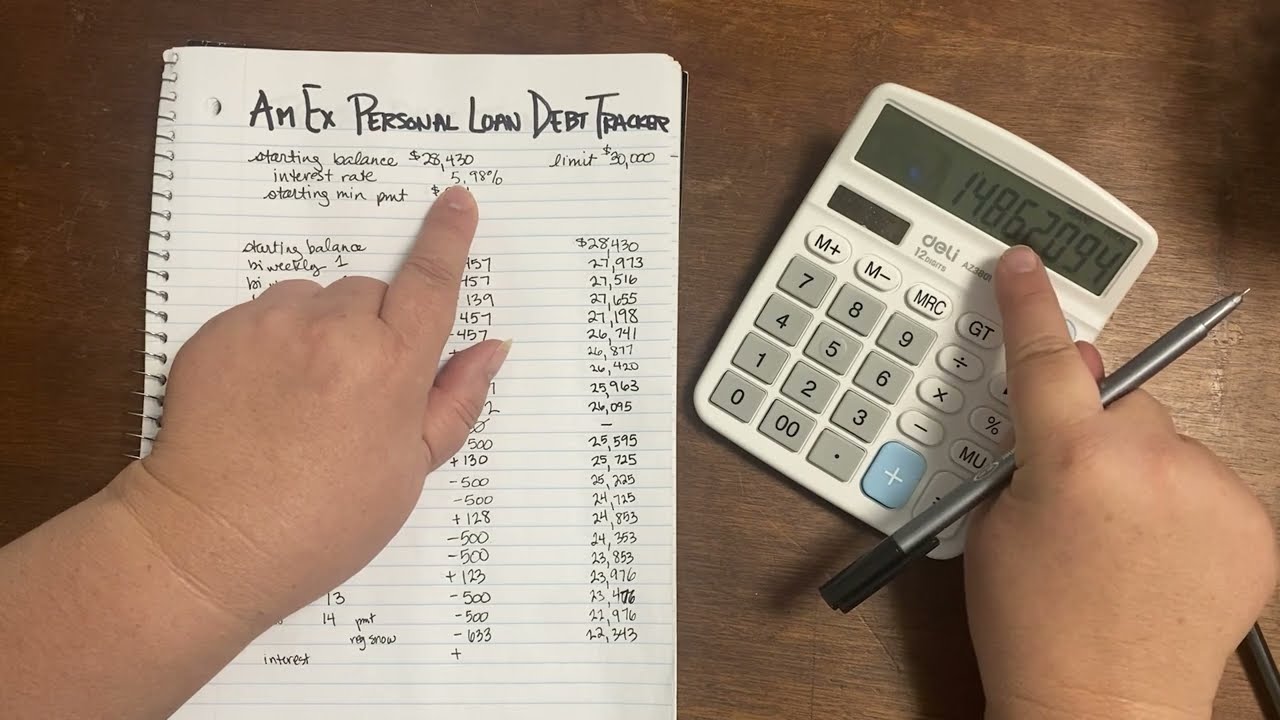 Am Ex Personal Loan Debt Tracker
starting balance $28,430 limit $30,000
interest rate 5.98%
starting min pmt $
starting balance $28,430
biweekly 1 457 27,973
457 27,516
139 27,655
457 27,198
-457 26,741
+ 26,877
26,420
25,963
2 26,095
-
500 25,595
+130 25,725
-500 25,225
-500 24,725
+128 24,853
-500 24,353
-500 23,853
+123 23,976
13 -500 23,476
14 pmt -500 22,976
reg snow -633 22,343
interest +
14862094
deli
12 DIGITS
M+ M- MRC GT
7 8 9 ÷
4 5 6 ×
1 2 3 − %
0 00 · + MU